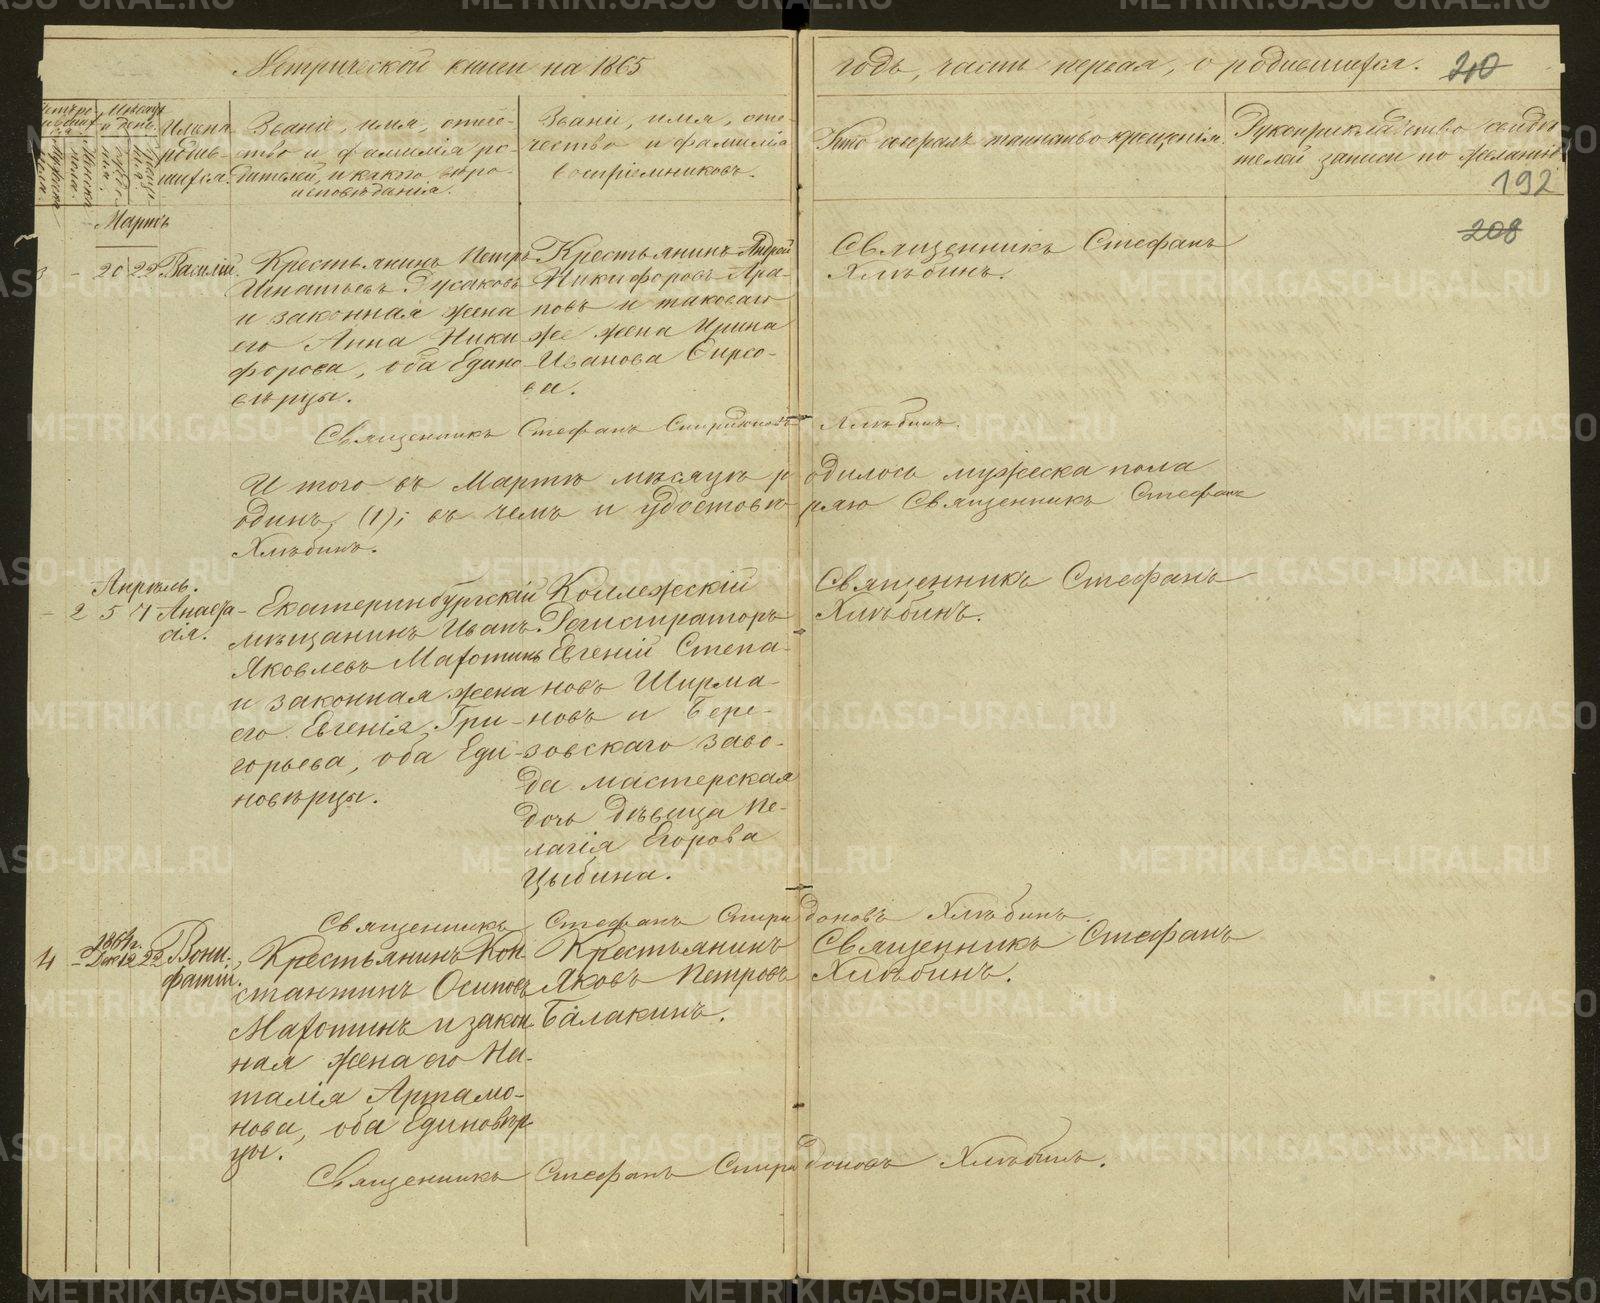 Метрической книги на 1865
годъ, часть первая, о родившихся.
210
Имена родив-
шихся.
Званіе, имя, отче-
ство и фамилія ро-
дителей, и какого вѣро-
исповѣданія.
Званіе, имя, оте-
чество и фамилія
воспріемниковъ.
Кто совершалъ таинство крещенія.
Рукоприкладство свидѣ-
телей записи по желанію
192
208
Мартъ
3 - 20 22 Василій.
Крестьянинъ Петръ
Игнатьевъ Русаковъ
и законная жена
его Анна Ники-
форова, оба Едино-
вѣрцы.
Крестьянинъ Андрей
Никифоровъ Ара-
повъ и таковаго
же жена Ирина
Иванова Сирсо-
ва.
Священникъ Стефанъ
Хлѣбинъ.
Священникъ Стефанъ Спиридоновъ Хлѣбинъ.
Итого въ Мартѣ мѣсяцѣ родилось мужеска пола
одинъ, (1); въ чемъ и удостовѣряю Священникъ Стефанъ
Хлѣбинъ.
Апрѣль.
- 2 5 7 Анаста-
сія.
Екатеринбургскій
мѣщанинъ Иванъ
Яковлевъ Махотинъ
и законная жена
его Евгенія Гри-
горьева, оба Еди-
новѣрцы.
Коллежскій
Регистраторъ
Евгеній Степа-
новъ Ширма-
новъ и Бере-
зовскаго заво-
да мастерская
дочь дѣвица Пе-
лагія Егорова
Цыбина.
Священникъ Стефанъ
Хлѣбинъ.
Священникъ Стефанъ Спиридоновъ Хлѣбинъ.
1864 г.
4 - Дек. 19 22 Вони-
фатій.
Крестьянинъ Кон-
стантинъ Осиповъ
Махотинъ и закон-
ная жена его На-
талія Артамо-
нова, оба Единовѣр-
цы.
Крестьянинъ
Яковъ Петровъ
Балакинъ.
Священникъ Стефанъ
Хлѣбинъ.
Священникъ Стефанъ Спиридоновъ Хлѣбинъ.
METRIKI.GASO-URAL.RU